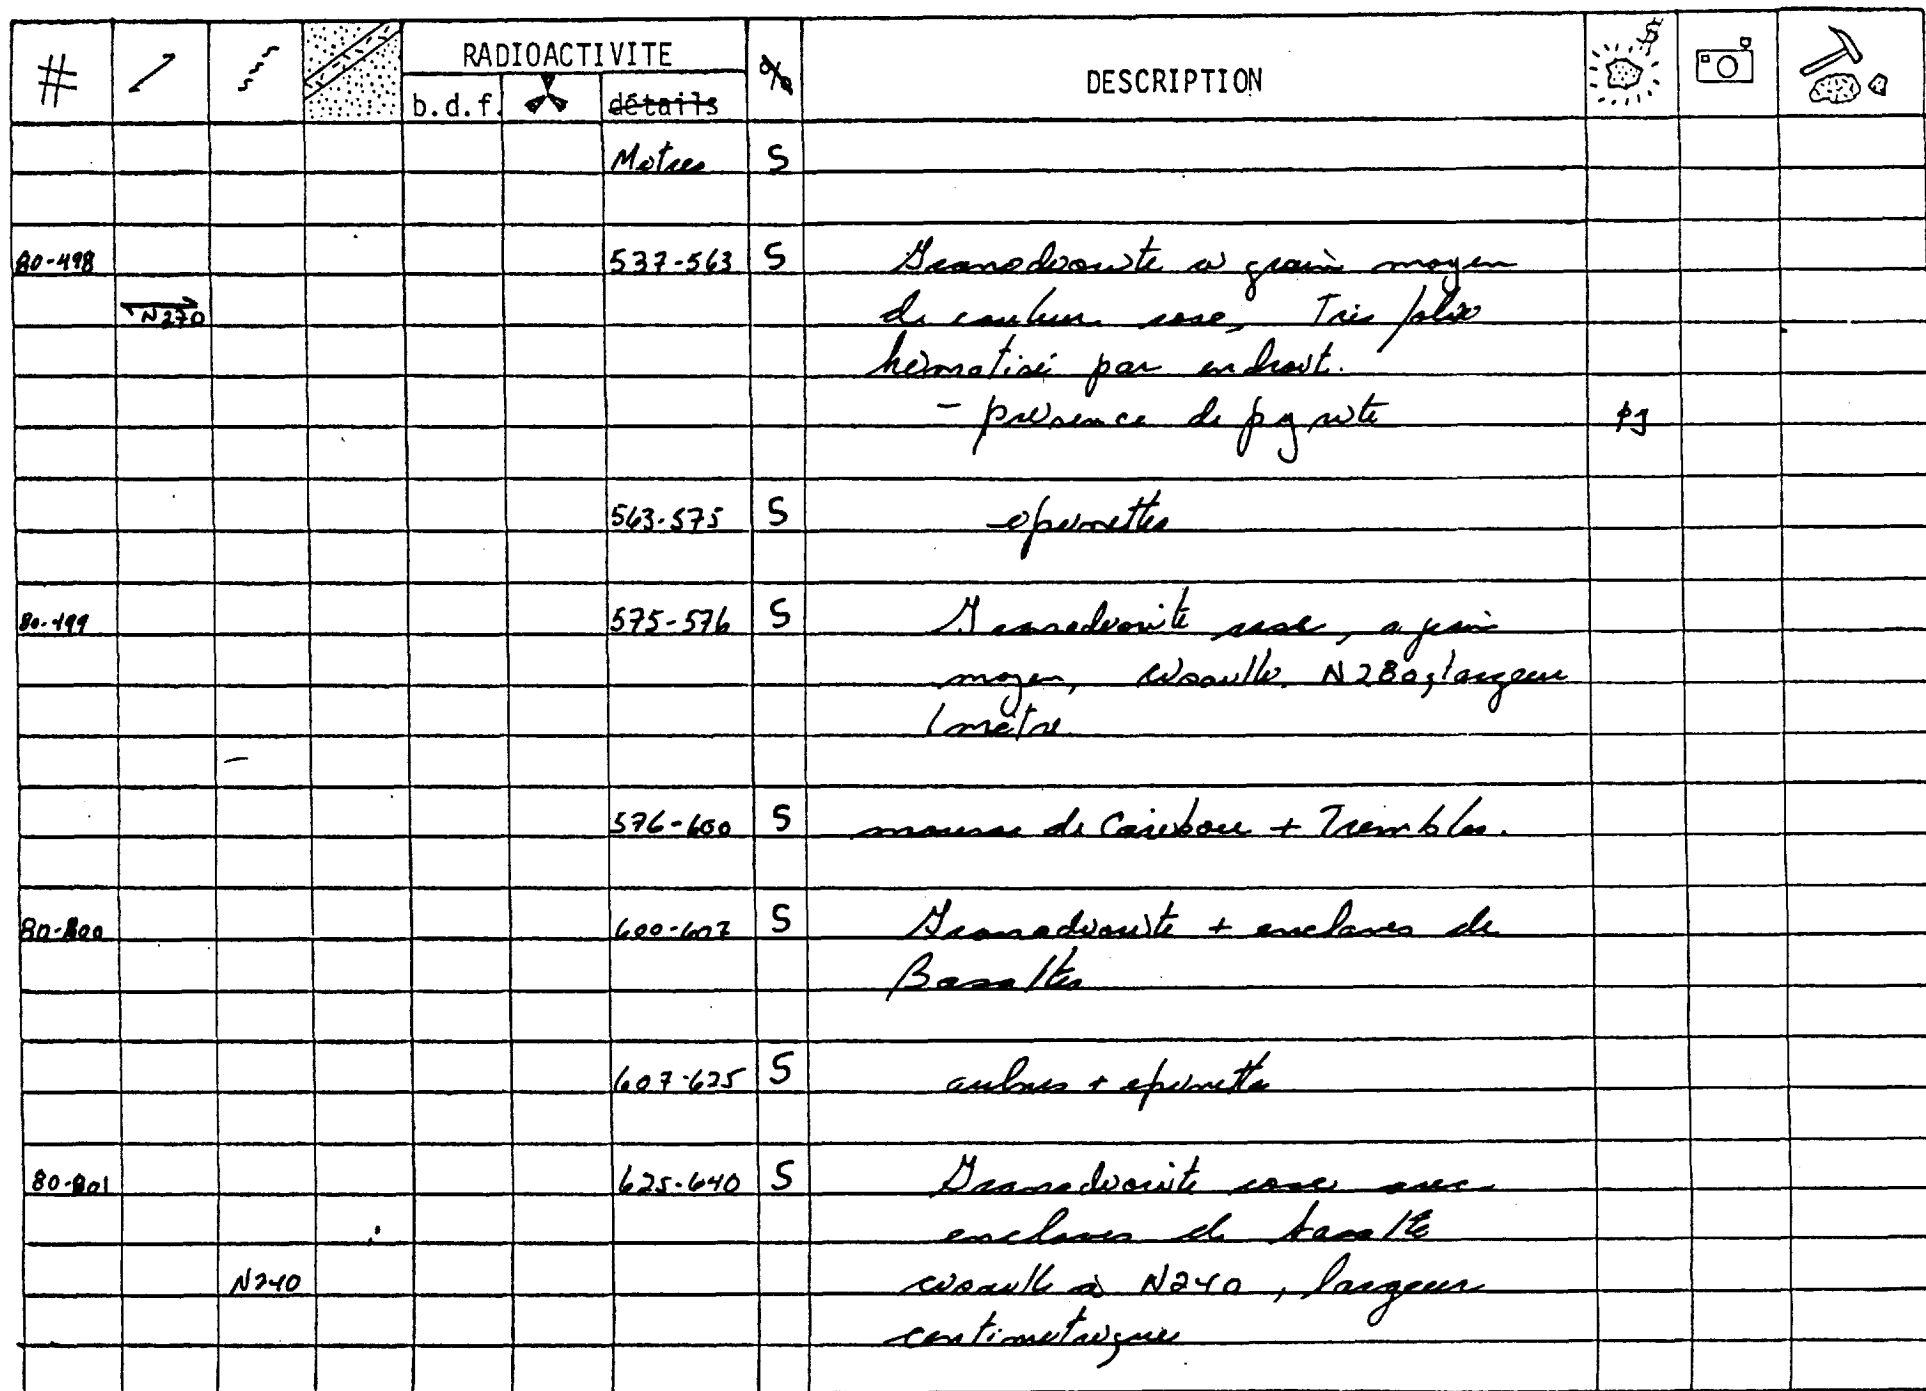 # RADIOACTIVITE % DESCRIPTION $
b.d.f. détails
Mètres S
80-498 537-563 S Granodiorite a grain moyen
N270 de couleur rose, Très folié
hématisé par endroit.
- présence de pyrite py
563-575 S epinettes
80-499 575-576 S Granodiorite rose, a grain
moyen, cisaillé N280, largeur
1 mètre
576-600 S mousse de Caribou + Trembles.
80-800 600-607 S Granodiorite + enclaves de
Basaltes
607-625 S aulnes + epinette
80-801 625-640 S Granodiorite rose avec
enclaves de basalte
N240 cisaillé à N240, largeur
centimetrique